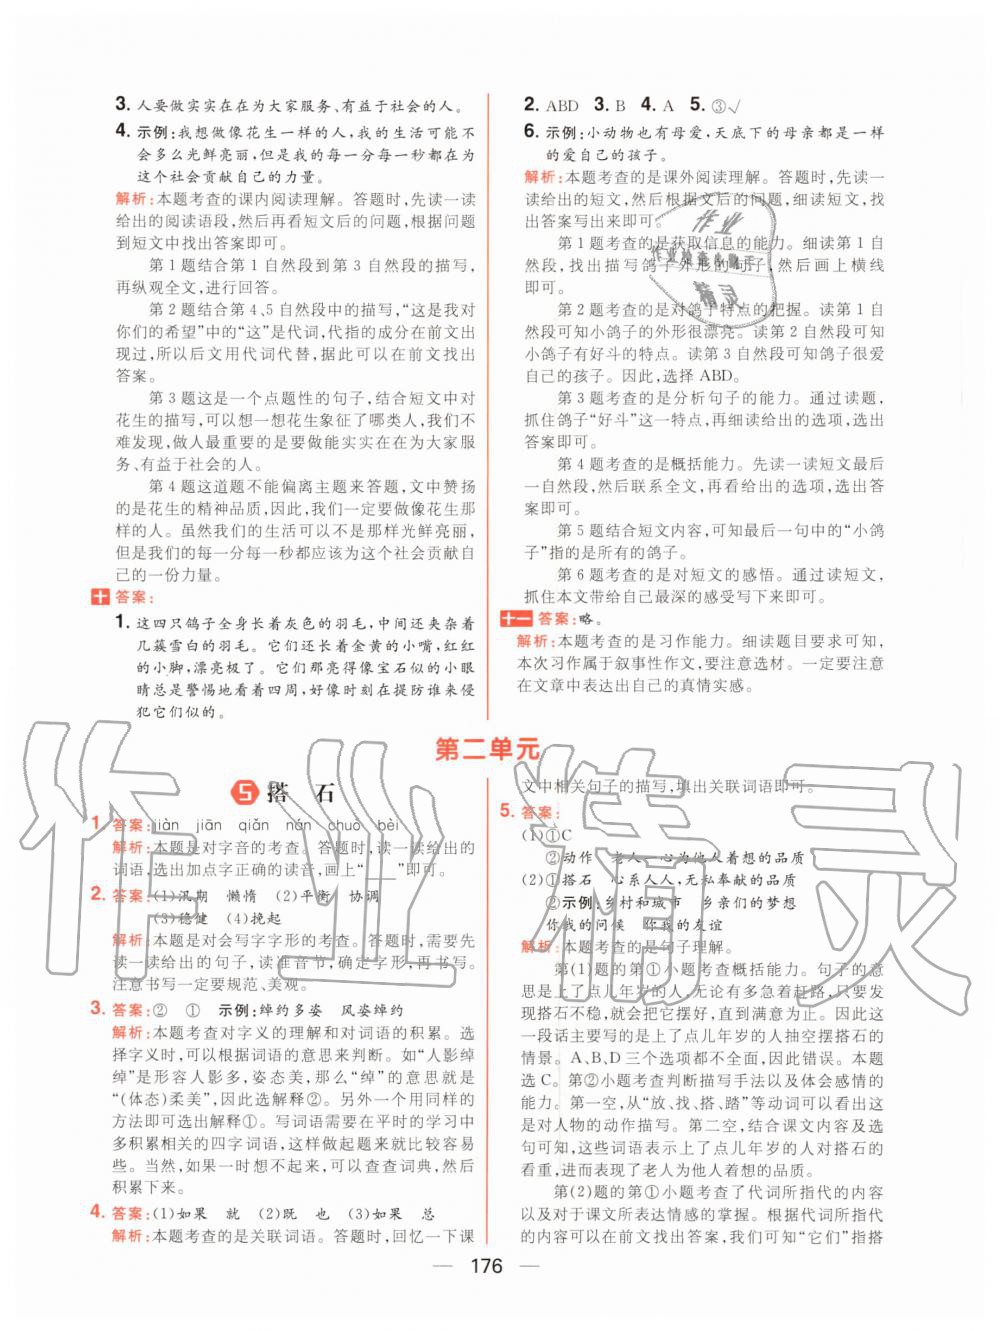 3. 人要做实实在在为大家服务、有益于社会的人。
4. 示例:我想做像花生一样的人,我的生活可能不
会多么光鲜亮丽,但是我的每一分每一秒都在为
这个社会贡献自己的力量。
解析:本题考查的课内阅读理解。答题时,先读一读
给出的阅读语段,然后再看短文后的问题,根据问题
到短文中找出答案即可。
第1题结合第1自然段到第3自然段的描写,
再纵观全文,进行回答。
第2题结合第4、5自然段中的描写,“这是我对
你们的希望”中的“这”是代词,代指的成分在前文出
现过,所以后文用代词代替,据此可以在前文找出
答案。
第3题这是一个点题性的句子,结合短文中对
花生的描写,可以想一想花生象征了哪类人,我们不
难发现,做人最重要的是要做能实实在在为大家服
务、有益于社会的人。
第4题这道题不能偏离主题来答题,文中赞扬
的是花生的精神品质,因此,我们一定要做像花生那
样的人。虽然我们的生活可以不是那样光鲜亮丽,
但是我们的每一分每一秒都应该为这个社会贡献自
己的一份力量。
十 答案:
1. 这四只鸽子全身长着灰色的羽毛,中间还夹杂着
几簇雪白的羽毛。它们还长着金黄的小嘴,红红
的小脚,漂亮极了。它们那亮得像宝石似的小眼
睛总是警惕地看着四周,好像时刻在提防谁来侵
犯它们似的。
2. ABD 3. B 4. A 5. ③√
6. 示例:小动物也有母爱,天底下的母亲都是一样
的爱自己的孩子。
解析:本题考查的是课外阅读理解。答题时,先读一
读给出的短文,然后根据文后的问题,细读短文,找
出答案写出来即可。
第1题考查的是获取信息的能力。细读第1自
然段,找出描写鸽子外形的句子,然后画上横线
即可。
第2题考查的是对鸽子特点的把握。读第1自
然段可知小鸽子的外形很漂亮。读第2自然段可知
小鸽子有好斗的特点。读第3自然段可知鸽子很爱
自己的孩子。因此,选择ABD。
第3题考查的是分析句子的能力。通过读题,
抓住鸽子“好斗”这一特点,再细读给出的选项,选出
答案即可。
第4题考查的是概括能力。先读一读短文最后
一自然段,然后联系全文,再看给出的选项,选出答
案即可。
第5题结合短文内容,可知最后一句中的“小鸽
子”指的是所有的鸽子。
第6题考查的是对短文的感悟。通过读短文,
抓住本文带给自己最深的感受写下来即可。
十一 答案:略。
解析:本题考查的是习作能力。细读题目要求可知,
本次习作属于叙事性作文,要注意选材。一定要注意
在文章中表达出自己的真情实感。
第二单元
5 搭 石
1. 答案:jiàn jiān qiǎn nán chuò bèi
解析:本题是对字音的考查。答题时,读一读给出的
词语,选出加点字正确的读音,画上“＿”即可。
2. 答案:(1)汛期 懒惰 (2)平衡 协调
(3)稳健 (4)挽起
解析:本题是对会写字字形的考查。答题时,需要先
读一读给出的拼音,读准音节,确定字形,再书写。
注意书写一定要规范、美观。
3. 答案:② ① 示例:绰约多姿 风姿绰约
解析:本题考查对字义的理解和对词语的积累。选
择字义时,可以根据词语的意思来判断。如“人影绰
绰”是形容人影多,姿态美,那么“绰”的意思就是
“(体态)柔美”,因此选解释②。另外一个用同样的
方法即可选出解释①。写词语需要在平时的学习中
多积累相关的四字词语,这样做起题来就比较容易
些。当然,如果一时想不起来,可以查查词典,然后
积累下来。
4. 答案:(1)如果 就 (2)既 也 (3)如果 总
解析:本题考查的是关联词语。答题时,回忆一下课
文中相关句子的描写,填出关联词语即可。
5. 答案:
(1)①C
②动作 老人一心为他人着想的品质
(2)①搭石 心系人人,无私奉献的品质
②示例:乡村和城市 乡亲们的梦想
你我的问候 你我的友谊
解析:本题考查的是句子理解。
第(1)题的第①小题考查概括能力。句子的意
思是上了点儿年岁的人,无论有多急着赶路,只要发
现搭石不稳,就会把它摆好,直到满意为正。因此这
一段话主要写的是上了点儿年岁的人抽空摆搭石的
情景。A、B、D三个选项都不全面,因此错误。本题
选C。第②小题考查判断描写手法以及体会感情的
能力。第一空,从“放、找、搭、踏”等动词可以看出这
是对人物的动作描写。第二空,结合课文内容及选
句可知,这些词语表示上了点儿年岁的人对搭石的
看重,进而表现了老人为他人着想的品质。
第(2)题的第①小题考查了代词所指代的内容
以及对于课文所表达情感的掌握。根据代词所指代
的内容可以在前文找出答案,我们可知“它们”指搭
176
作业
精灵
作业精灵